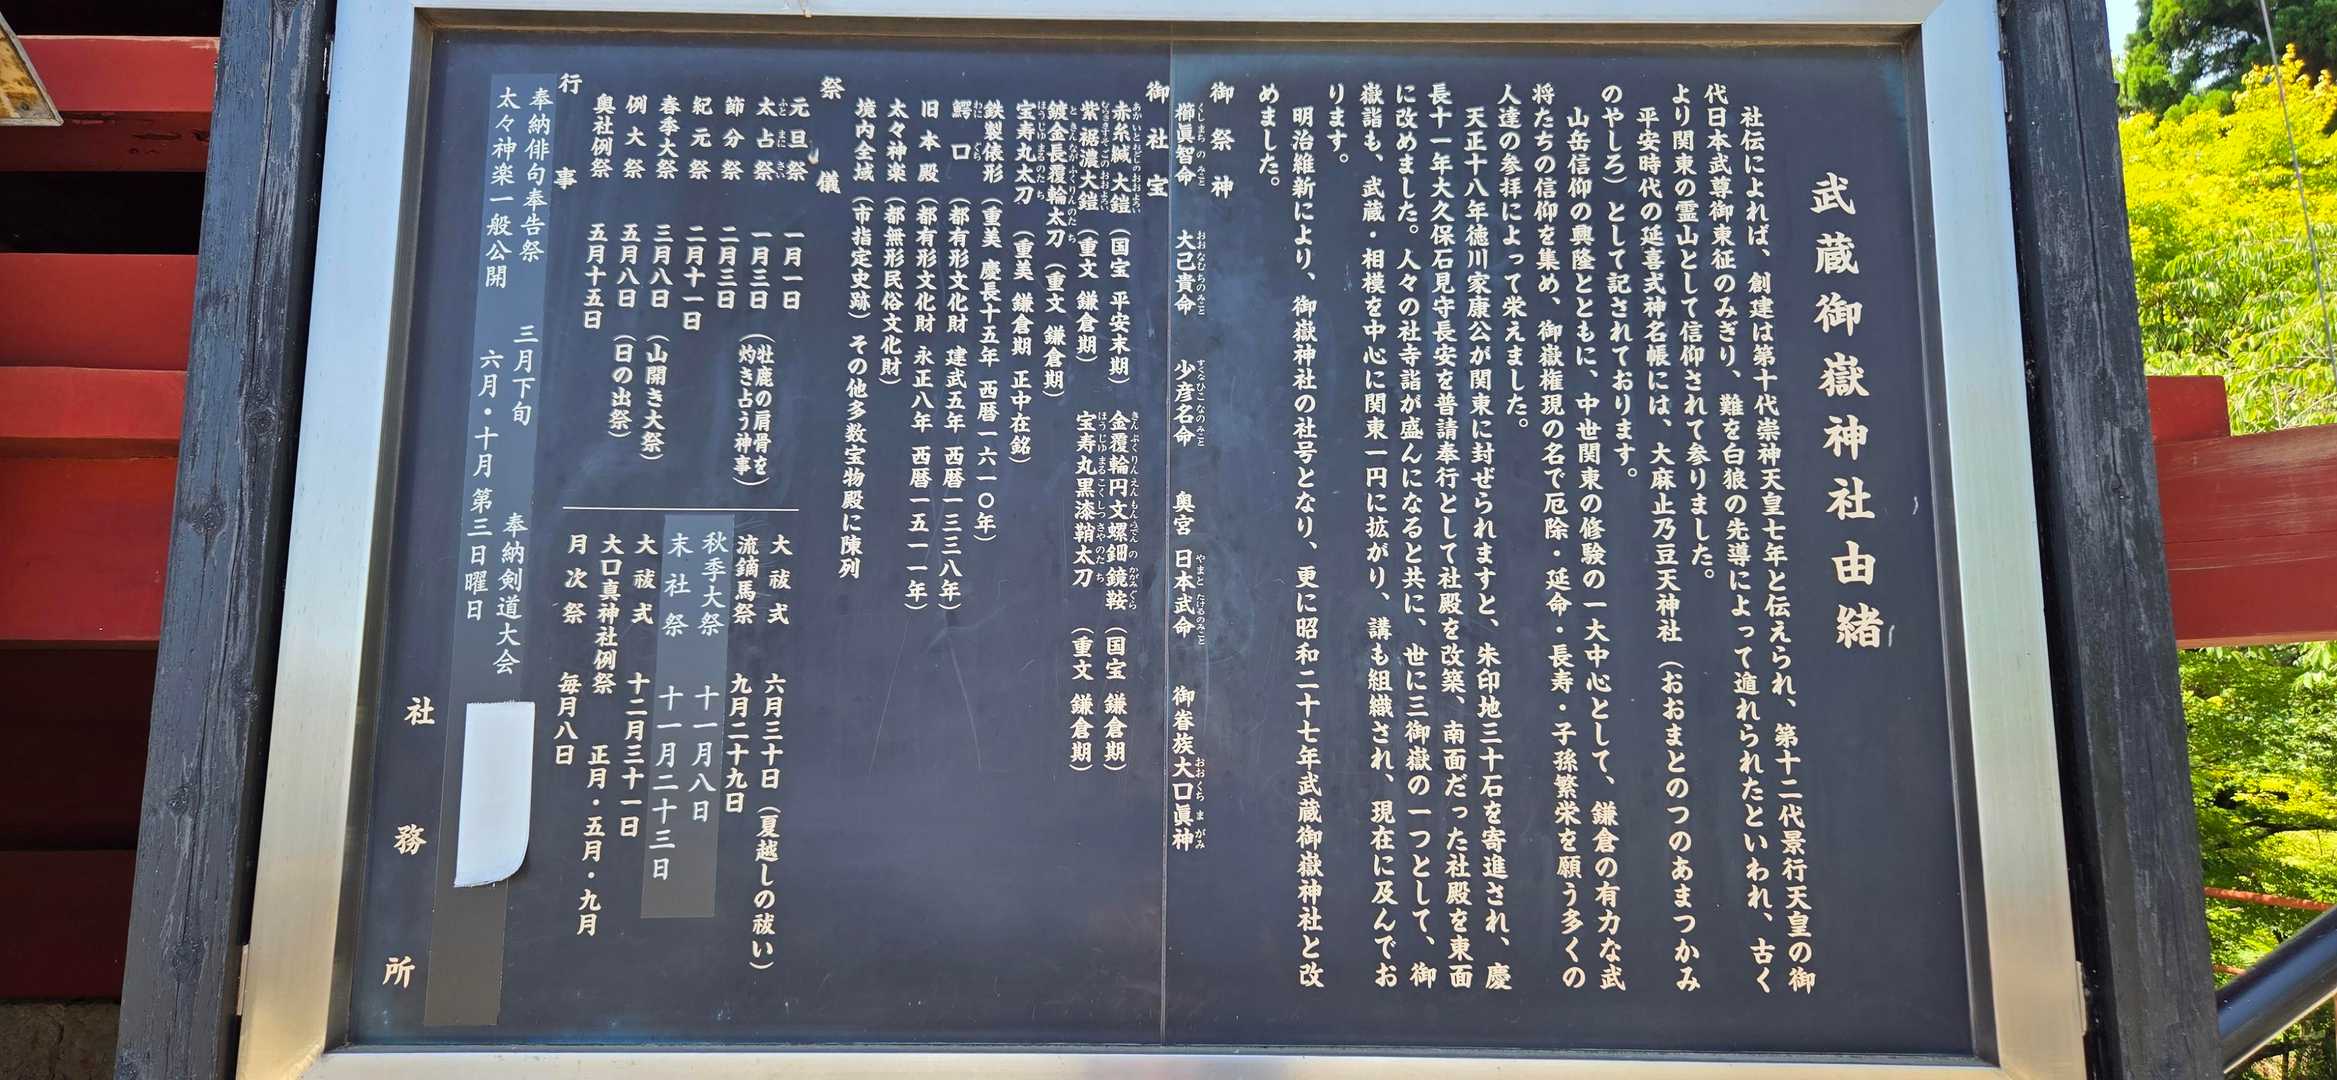 武蔵御嶽神社由緒
社伝によれば、創建は第十代崇神天皇七年と伝えられ、第十二代景行天皇の御
代日本武尊御東征のみぎり、難を白狼の先導によって遁れられたといわれ、古く
より関東の霊山として信仰されて参りました。
平安時代の延喜式神名帳には、大麻止乃豆天神社（おおまとのつのあまつかみ
のやしろ）として記されております。
山岳信仰の興隆とともに、中世関東の修験の一大中心として、鎌倉の有力な武
将たちの信仰を集め、御嶽権現の名で厄除・延命・長寿・子孫繁栄を願う多くの
人達の参拝によって栄えました。
天正十八年徳川家康公が関東に封ぜられますと、朱印地三十石を寄進され、慶
長十一年大久保石見守長安を普請奉行として社殿を改築、南面だった社殿を東面
に改めました。人々の社寺詣が盛んになると共に、世に三御嶽の一つとして、御
嶽詣も、武蔵・相模を中心に関東一円に拡がり、講も組織され、現在に及んでお
ります。
明治維新により、御嶽神社の社号となり、更に昭和二十七年武蔵御嶽神社と改
めました。
御祭神
櫛眞智命 大己貴命 少彦名命 奥宮 日本武命 御眷族大口眞神
くしまちのみこと おおなむちのみこと すくなひこなのみこと やまとたけるのみこと おおくちまがみ
御社宝
赤糸縅大鎧（国宝 平安末期） 金覆輪円文螺鈿鏡鞍（国宝 鎌倉期）
あかいとおどしのおおよろい きんぷくりんえんもんらでんのかがみぐら
紫裾濃大鎧（重文 鎌倉期） 宝寿丸黒漆鞘太刀（重文 鎌倉期）
むらさきすそごのおおよろい ほうじゅまるこくしつさやのたち
鍍金長覆輪太刀（重文 鎌倉期）
ときんながふくりんのたち
宝寿丸太刀（重美 鎌倉期 正中在銘）
ほうじゅまるのたち
鉄製俵形（重美 慶長十五年 西暦一六一〇年）
鰐口（都有形文化財 建武五年 西暦一三三八年）
わにぐち
旧本殿（都有形文化財 永正八年 西暦一五一一年）
太々神楽（都無形民俗文化財）
境内全域（市指定史跡）その他多数宝物殿に陳列
祭儀
元旦祭 一月一日
太占祭 一月三日（牡鹿の肩骨を灼き占う神事）
ふとまにさい
節分祭 二月三日
紀元祭 二月十一日
春季大祭 三月八日（山開き大祭）
例大祭 五月八日（日の出祭）
奥社例祭 五月十五日
大祓式 六月三十日（夏越しの祓い）
流鏑馬祭 九月二十九日
秋季大祭 十一月八日
末社祭 十一月二十三日
大祓式 十二月三十一日
大口真神社例祭 正月・五月・九月
月次祭 毎月八日
行事
奉納俳句奉告祭 三月下旬 奉納剣道大会
太々神楽一般公開 六月・十月 第三日曜日
社務所